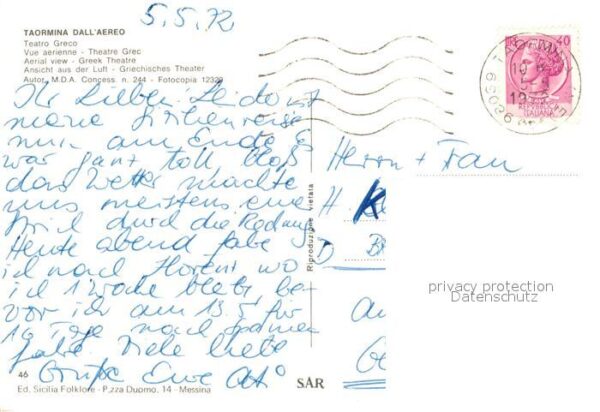 5.5.72
TAORMINA DALL'AEREO
Teatro Greco
Vue aérienne - Theatre Grec
Aerial view - Greek Theatre
Ansicht aus der Luft - Griechisches Theater
Autor. M.D.A. Concess. n. 244 - Fotocopia 12320
Ihr Lieben! Leider ist
meine Sizilienreise
nun am Ende. Es
war ganz toll bloß
das Wetter machte
uns meistens einen
durch die Rechnung
Heute abend fahre
ich nach Florenz wo
ich 1 Woche bleibe be-
vor ich am 13.5 für
Tage nach
fahre Viele liebe
Grüße Eure
46
Ed. Sicilia Folklore - P.zza Duomo, 14 - Messina
Riproduzione vietata
SAR
Herrn + Frau
H
D
40
REPUBBLICA
ITALIANA
privacy protection
Datenschutz